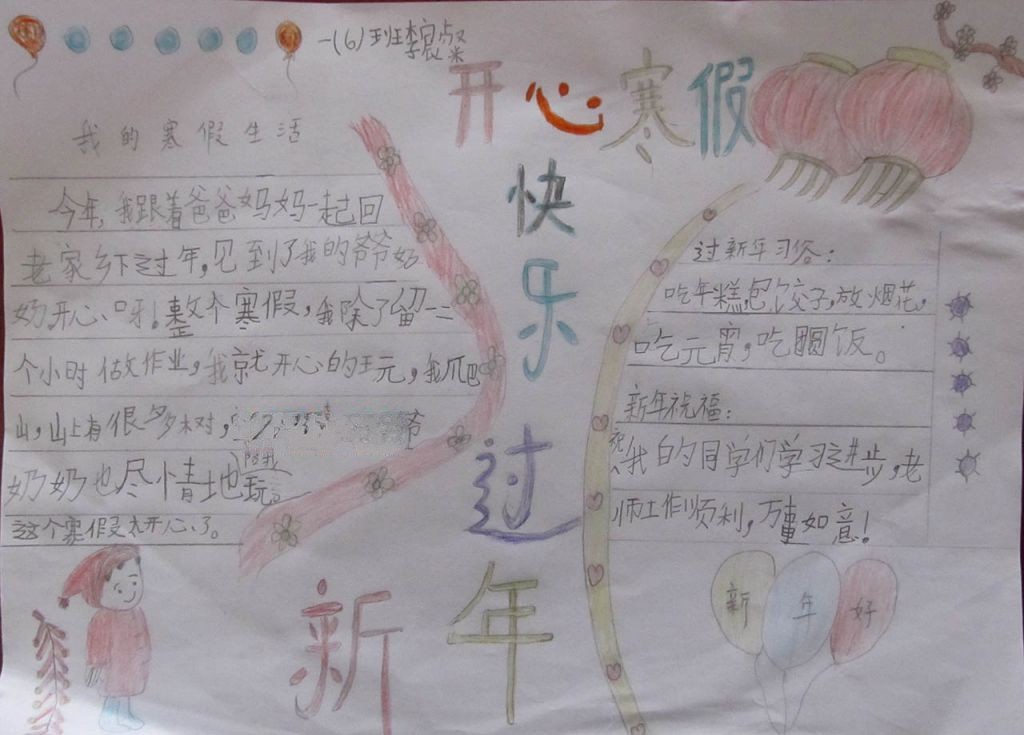 一(6)班李
开心寒假
快
乐
过
新年
我的寒假生活
今年,我跟着爸爸妈妈一起回
老家乡下过年,见到了我的爷爷奶
奶,开心呀!整个寒假,我除了留一二
个小时做作业,我就开心的玩,我爬
山,山上有很多树,爷
奶奶也尽情地陪我玩。
这个寒假太开心了。
过新年习俗:
吃年糕,包饺子,放烟花,
吃元宵,吃团圆饭。
新年祝福:
祝我的同学们学习进步,老
师工作顺利,万事如意!
新年好